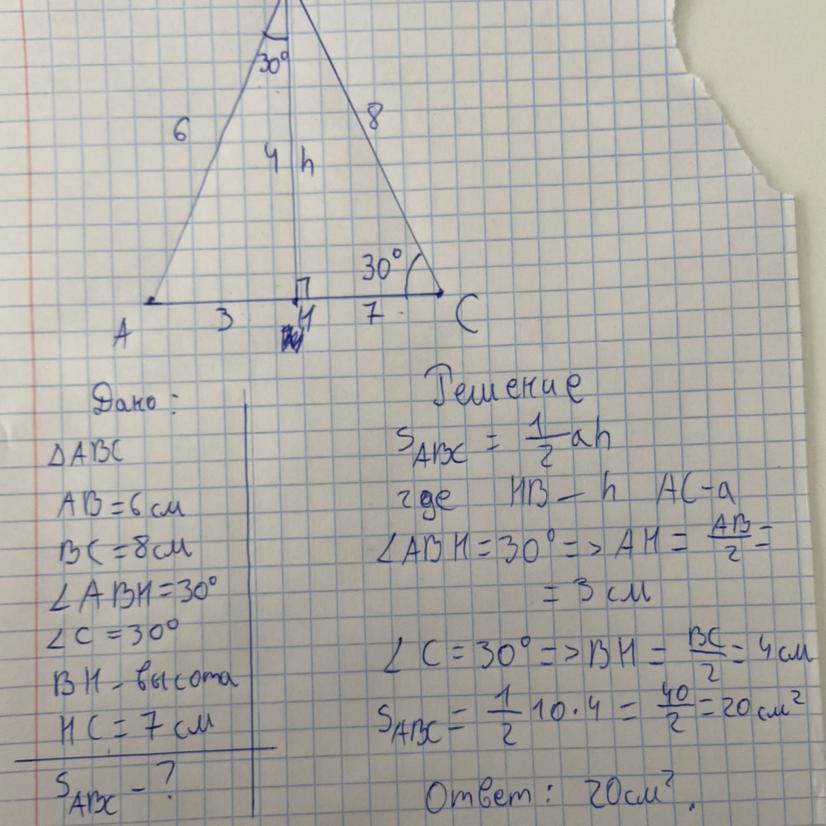 30°
6
8
4 h
30°
A 3 H 7 C
Дано:
△ABC
AB = 6 см
BC = 8 см
∠ABH = 30°
∠C = 30°
BH - высота
HC = 7 см
S_ABC - ?
Решение
S_ABC = 1/2 ah
где HB - h AC - a
∠ABH = 30° => AH = AB/2 =
= 3 см
∠C = 30° => BH = BC/2 = 4 см
S_ABC = 1/2 10 · 4 = 40/2 = 20 см²
Ответ: 20 см².